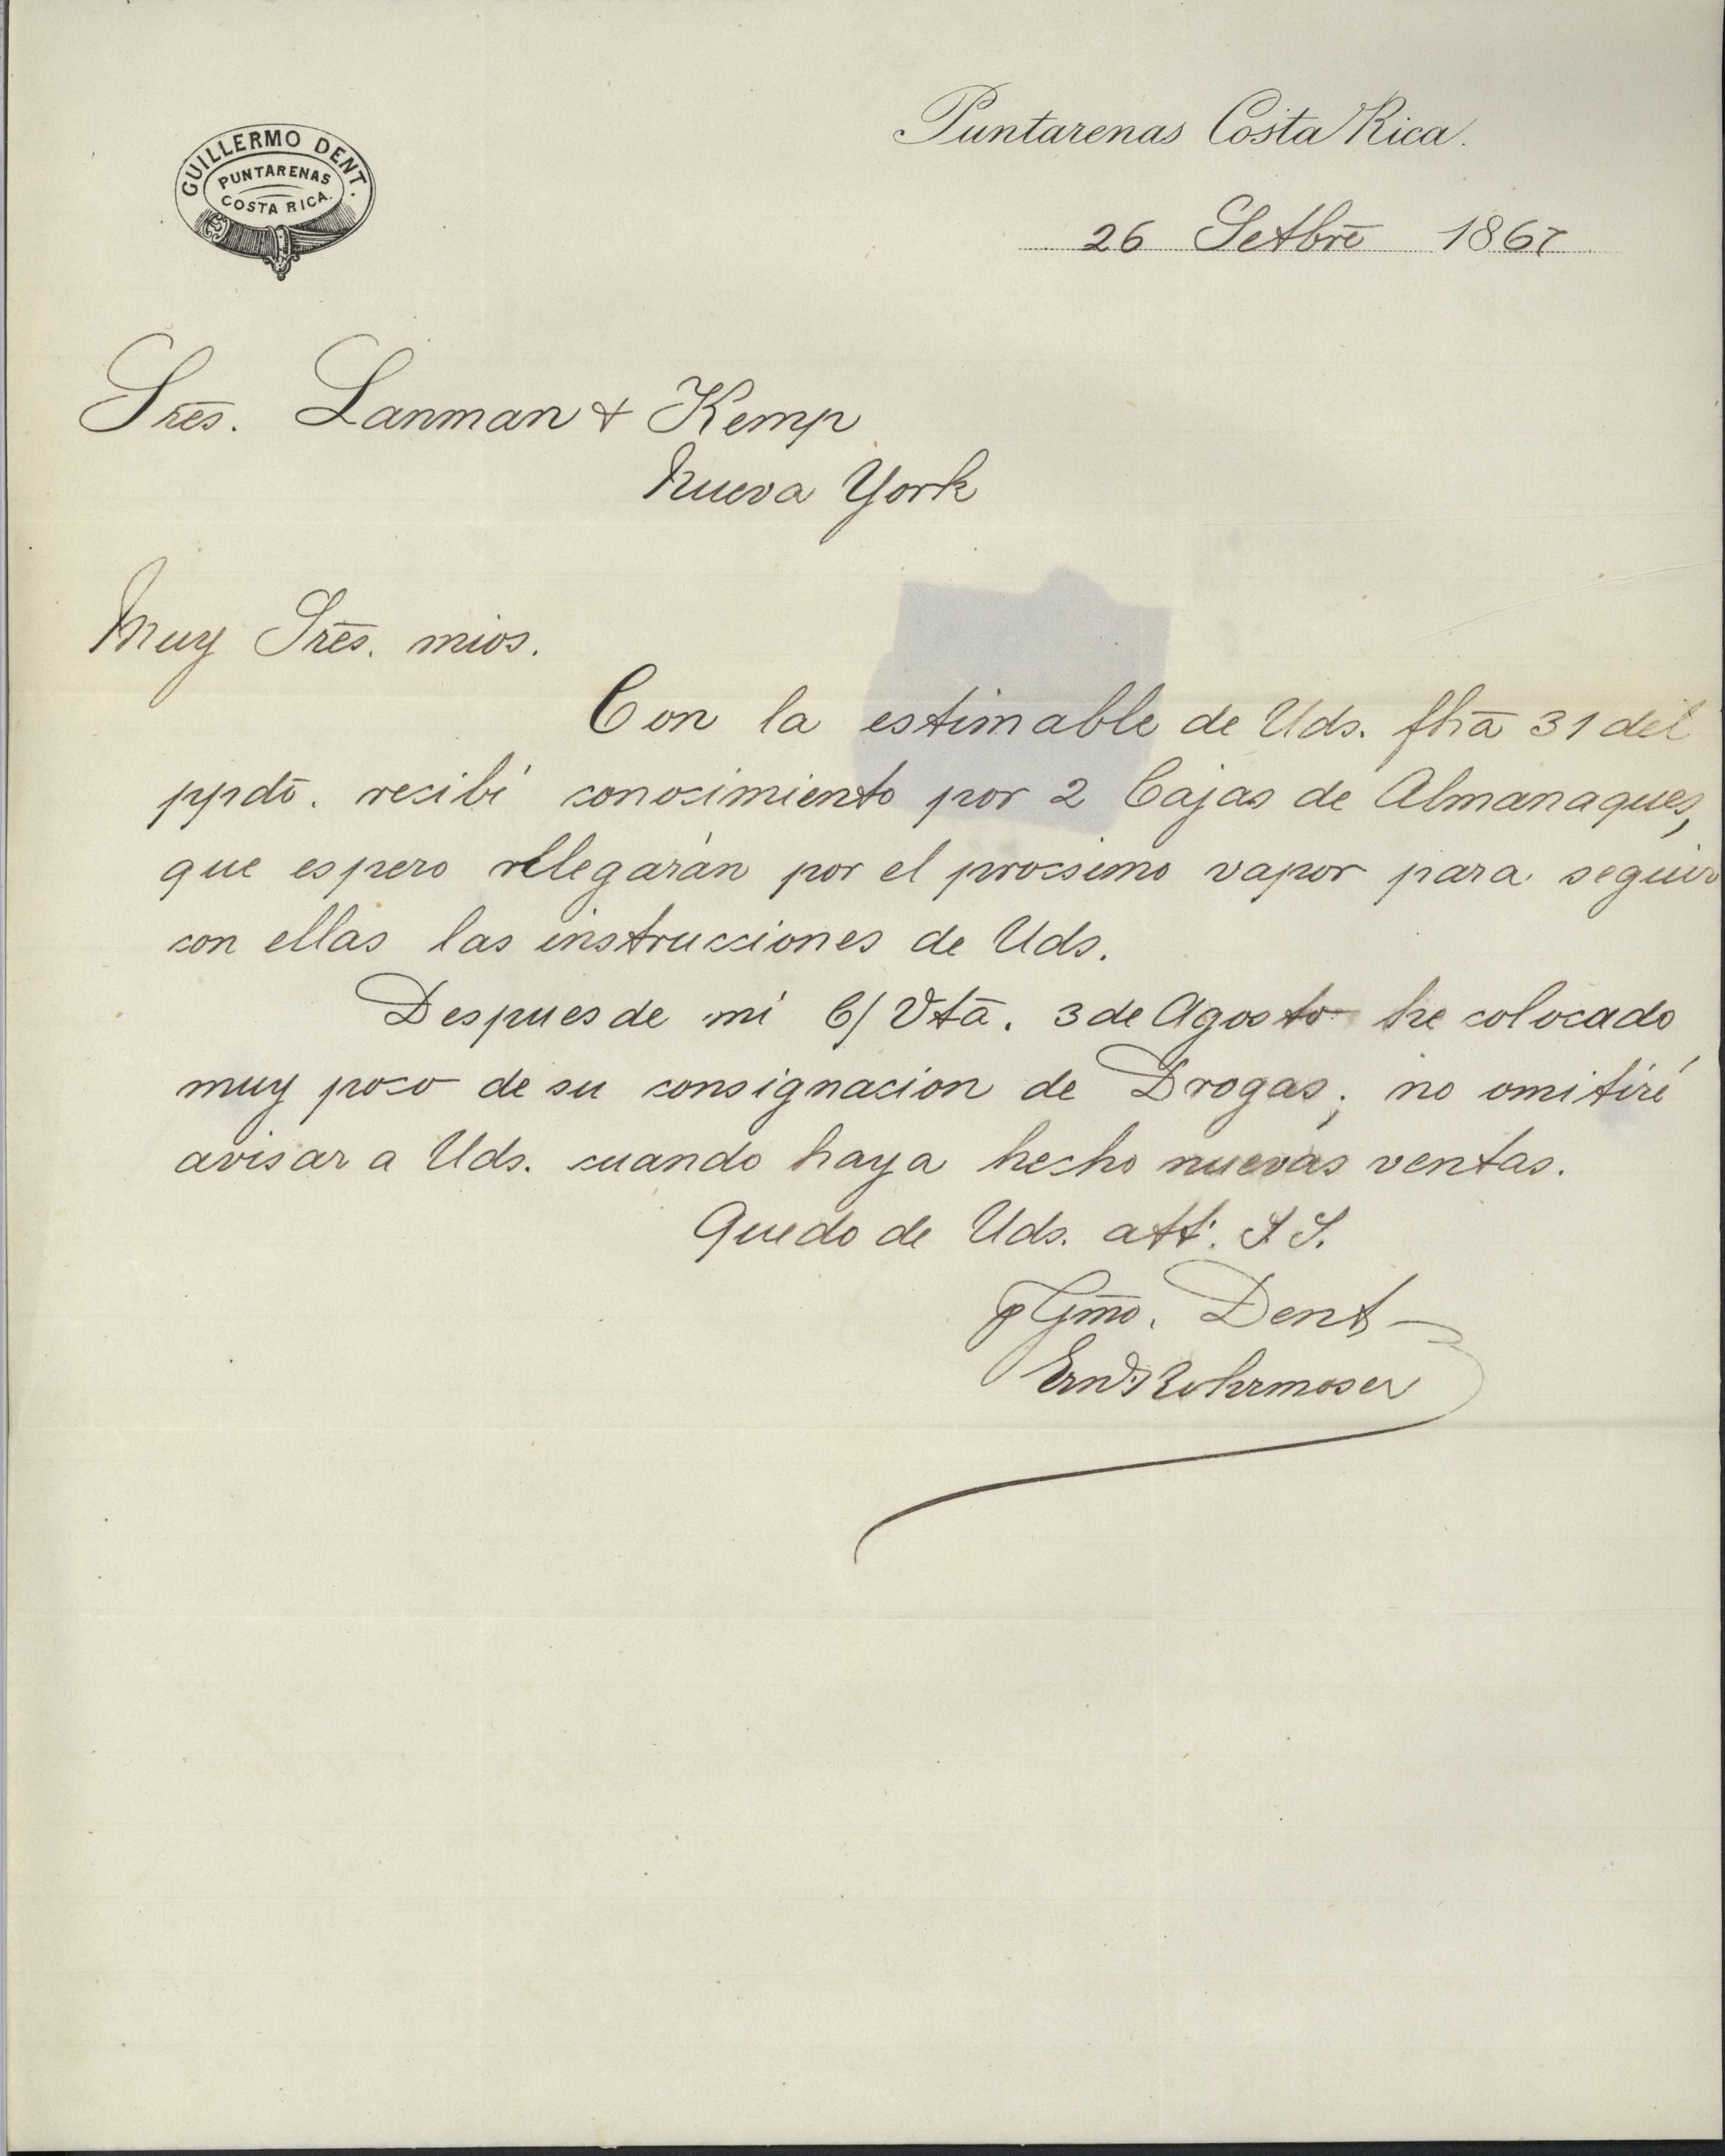 GUILLERMO DENT.
PUNTARENAS
COSTA RICA.
Puntarenas Costa Rica.
26 Setbre 1867
Sres. Lanman & Kemp
Nueva York
Muy Sres. mios.
Con la estimable de Uds. fha 31 del
ppdo. recibí conocimiento por 2 Cajas de Almanaques,
que espero llegarán por el procsimo vapor para seguir
con ellas las instrucciones de Uds.
Despues de mi C/ Vta. 3 de Agosto he colocado
muy poco de su consignacion de Drogas; no omitiré
avisar a Uds. cuando haya hecho nuevas ventas.
Quedo de Uds. att. S. S.
p Gmo. Dent
Rohrmoser